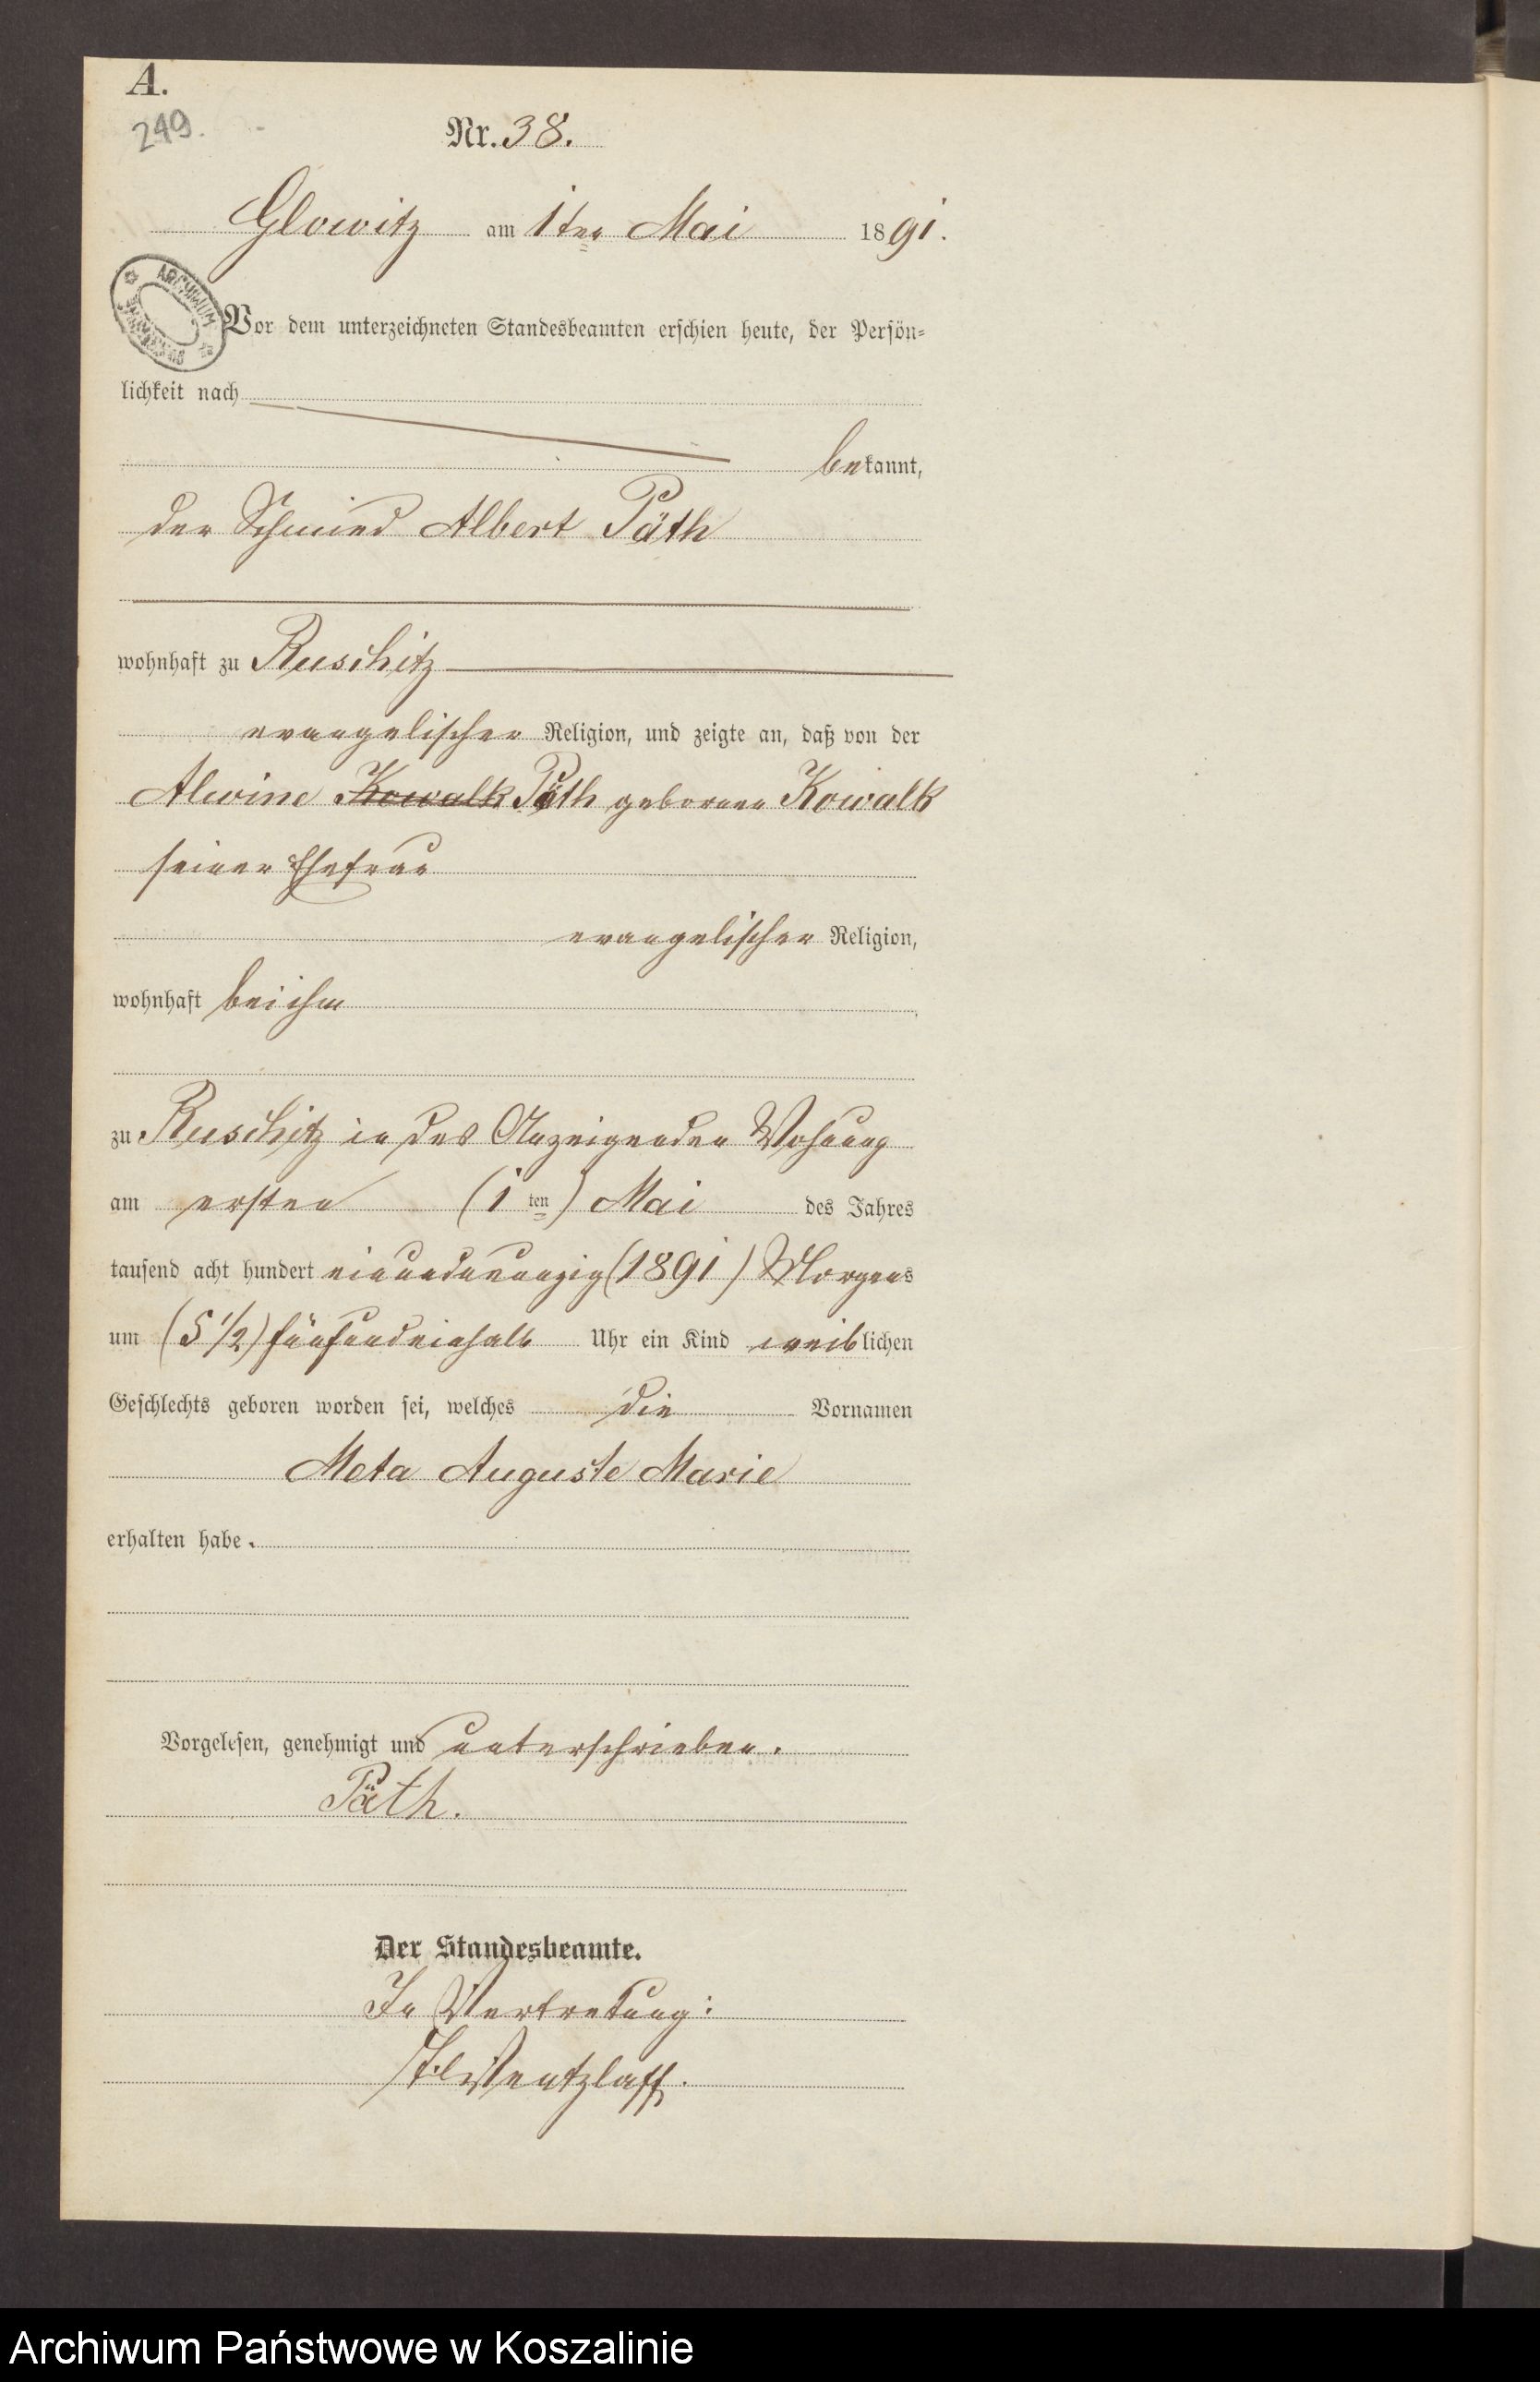 A.
249.
Nr. 38.
Glowitz am 1ten Mai 1891.
ARCHIWUM
Vor dem unterzeichneten Standesbeamten erschien heute, der Persön=
lichkeit nach
bekannt,
der Schmied Albert Päth
wohnhaft zu Ruschitz
evangelischer Religion, und zeigte an, daß von der
Alwine Kowalk Päth geborenen Kowalk
seiner Ehefrau
evangelischer Religion,
wohnhaft bei ihm
zu Ruschitz in des Anzeigenden Wohnung
am ersten (1 ten) Mai des Jahres
tausend acht hundert einundneunzig (1891) Morgens
um (5 1/2) fünfundeinhalb Uhr ein Kind weiblichen
Geschlechts geboren worden sei, welches die Vornamen
Meta Auguste Marie
erhalten habe.
Vorgelesen, genehmigt und unterschrieben.
Päth.
Der Standesbeamte.
In Vertretung:
Wentzlaff.
Archiwum Państwowe w Koszalinie